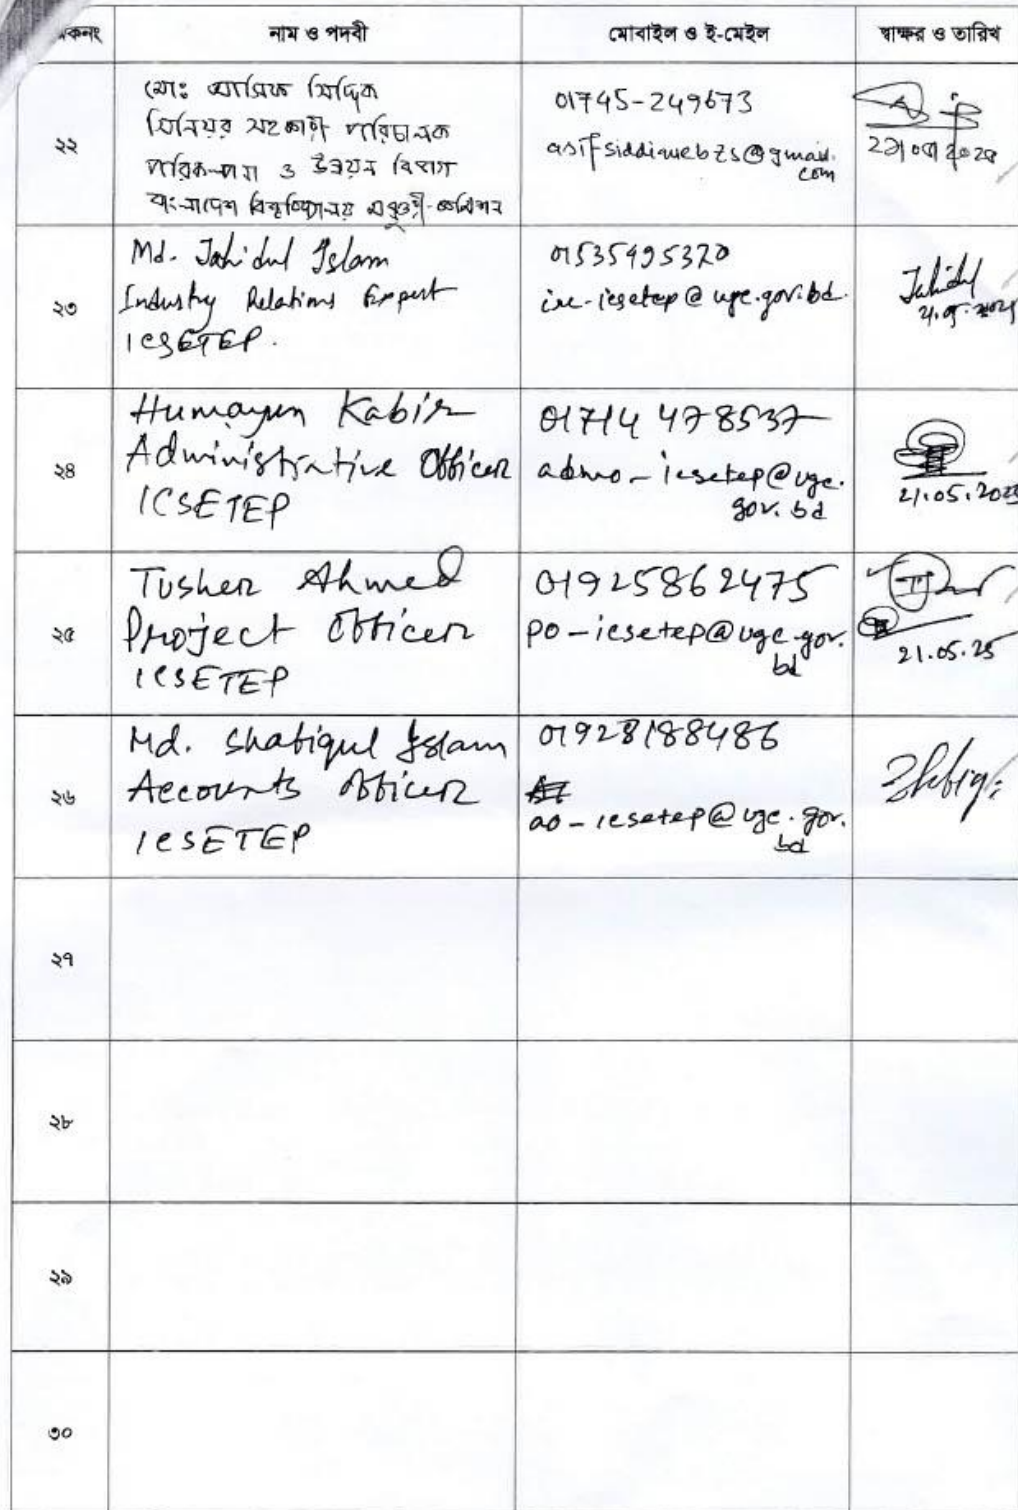 ক্রমিকনং নাম ও পদবী মোবাইল ও ই-মেইল স্বাক্ষর ও তারিখ
২২
মোঃ আসিফ সিদ্দিক
সিনিয়র সহকারী পরিচালক
পরিকল্পনা ও উন্নয়ন বিভাগ
বাংলাদেশ বিশ্ববিদ্যালয় মঞ্জুরী কমিশন
01745-249673
asifsiddiquebzs@gmail.
com
২৩
Md. Jahidul Islam
Industry Relations Expert
ICSETEP.
01535495370
ire-icsetep@ugc.gov.bd.
Jahidul
২৪
Humayun Kabir
Administrative Officer
ICSETEP
01714 478537
admo-icsetep@ugc.
gov.bd
21.05.2025
২৫
Tusher Ahmed
Project Officer
ICSETEP
01925862475
po-icsetep@ugc.gov.
bd
21.05.25
২৬
Md. Shafiqul Islam
Accounts Officer
ICSETEP
01928188486
ao-icsetep@ugc.gov.
bd
২৭
২৮
২৯
৩০